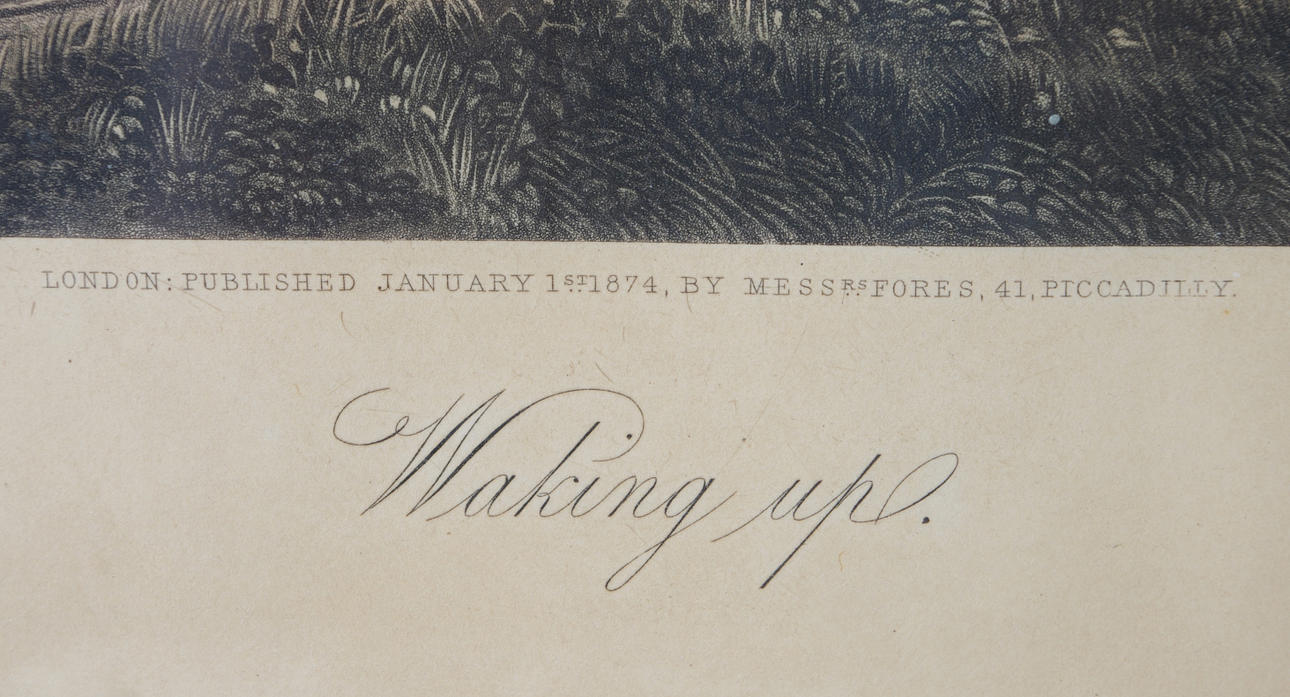 LONDON: PUBLISHED JANUARY 1ST 1874, BY MESSRS FORES, 41, PICCADILLY.
Waking up.